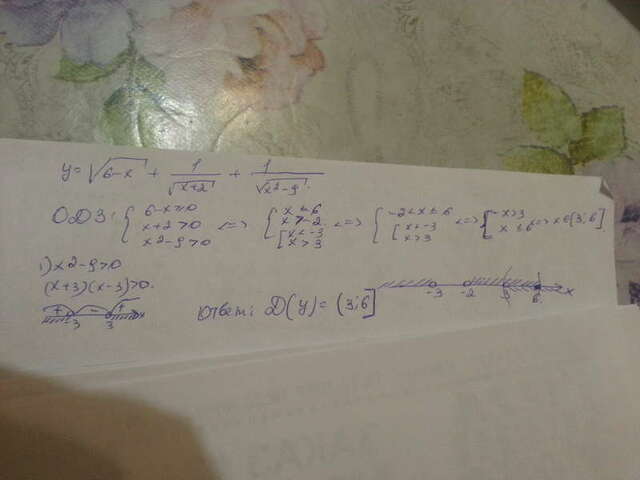 y = √(6-x) + 1/√(x+2) + 1/√(x²-9).
ОДЗ: { 6-x≥0 x+2>0 x²-9>0 <=> { x≤6 x>-2 [ x<-3 x>3 <=> { -2<x≤6 [ x<-3 x>3 <=> { x>3 x≤6 <=> x∈(3;6]
1) x²-9>0
(x+3)(x-3)>0.
+ - + -3 3 x
Ответ: D(y) = (3;6]
-3 -2 3 6 x
ЗАКАЗ